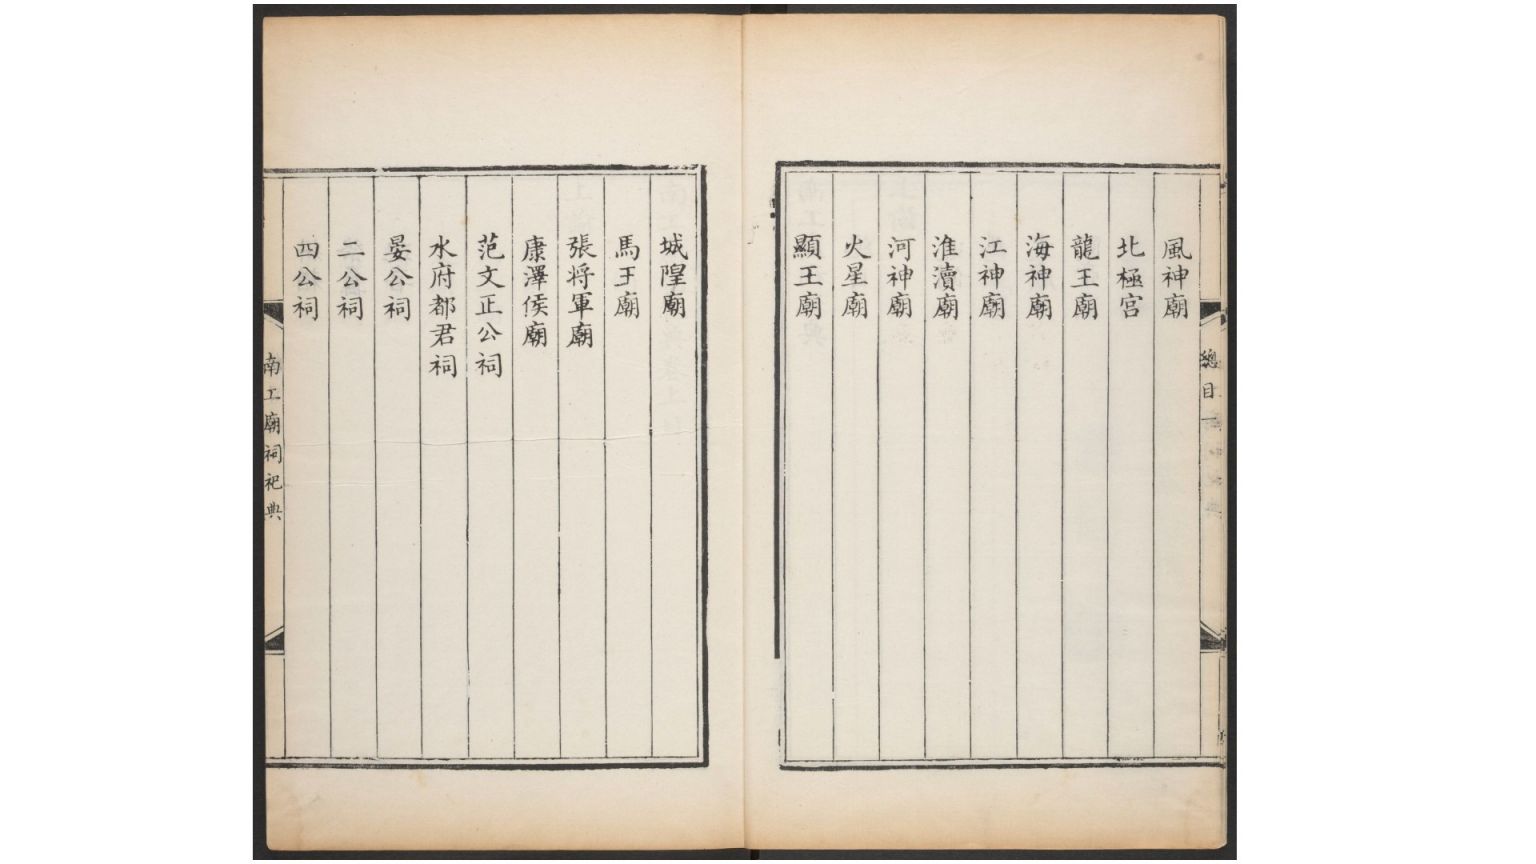 總目
一
風神廟
北極宮
龍王廟
海神廟
江神廟
淮瀆廟
河神廟
火星廟
顯王廟
城隍廟
馬王廟
張将軍廟
康澤侯廟
范文正公祠
水府都君祠
晏公祠
二公祠
四公祠
南工廟祠祀典